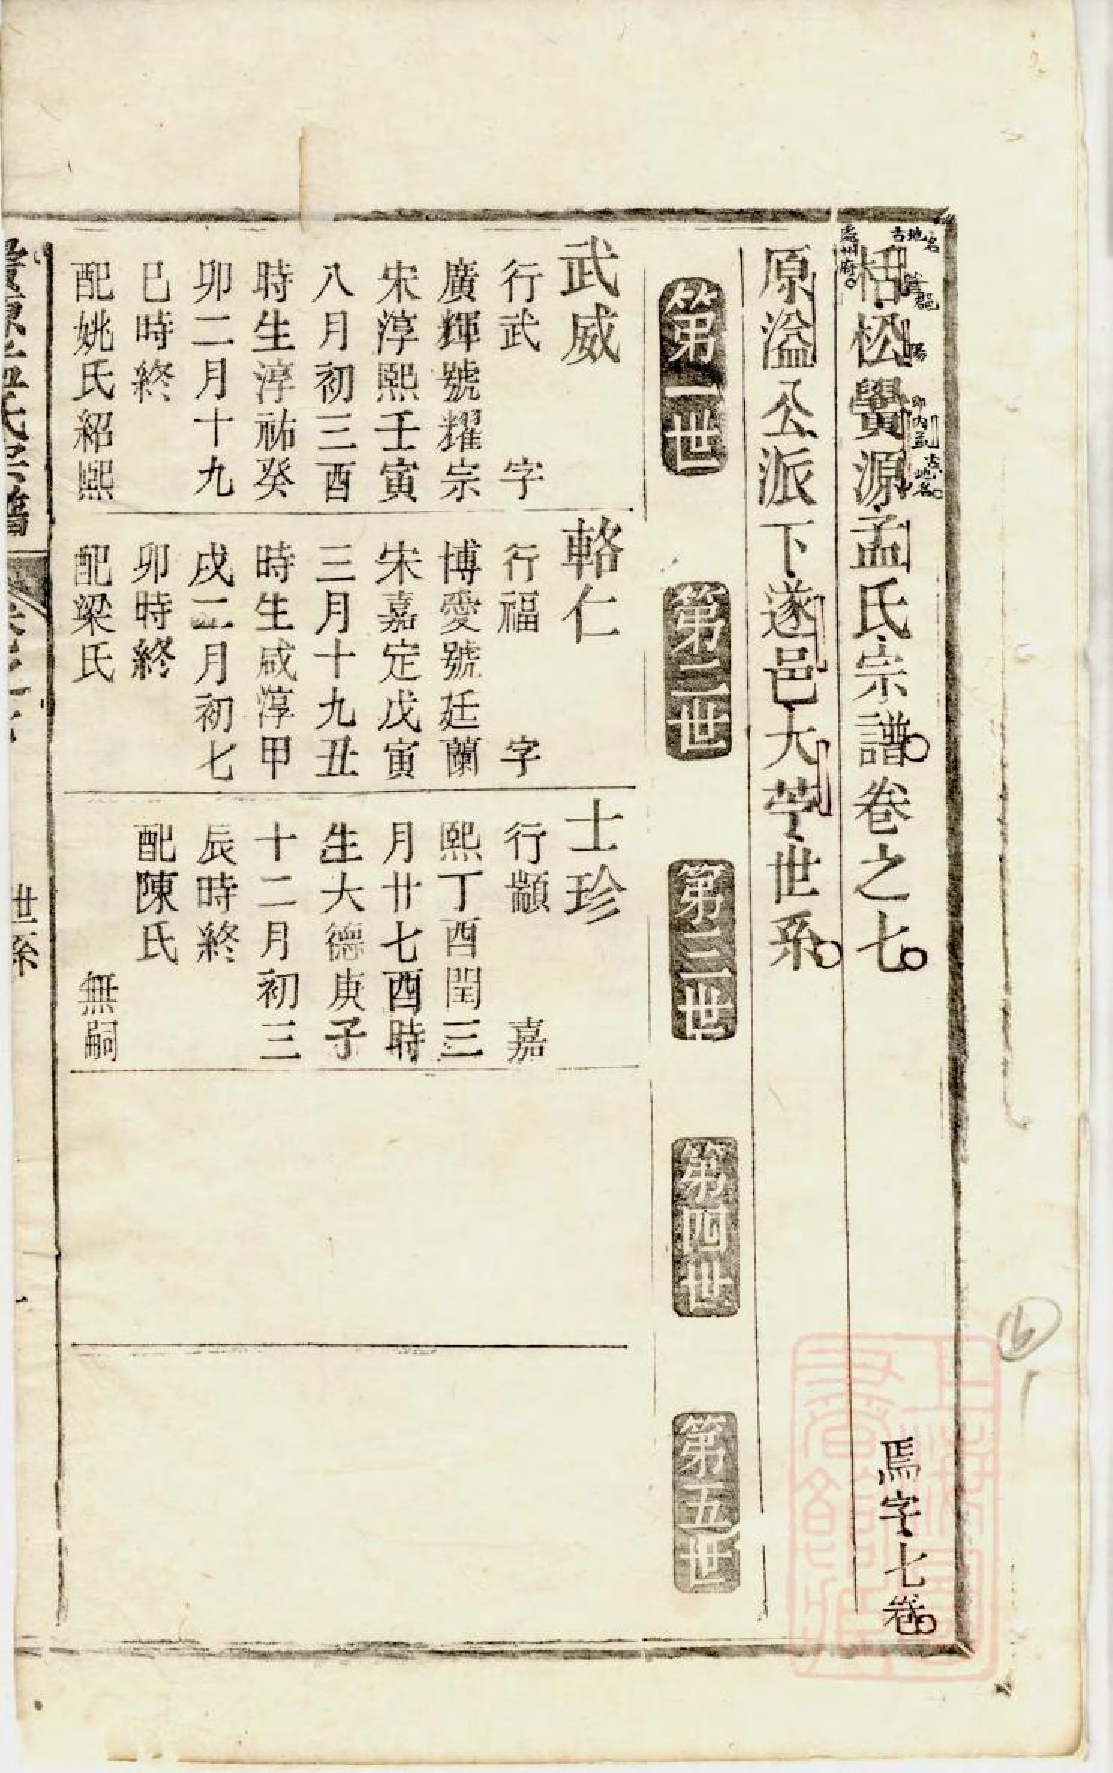 栝松黌源孟氏宗譜卷之七
焉字七卷
原溢公派下遂邑大苧世系
第一世
第二世
第三世
第四世
第五世
武威
行武 字
廣輝號耀宗
宋淳熙壬寅
八月初三酉
時生淳祐癸
卯二月十九
巳時終
配姚氏紹熙
輅仁
行福 字
博愛號廷蘭
宋嘉定戊寅
三月十九丑
時生咸淳甲
戌二月初七
卯時終
配梁氏
士珍
行顓 嘉
熙丁酉閏三
月廿七酉時
生大德庚子
十二月初三
辰時終
配陳氏
無嗣
世系